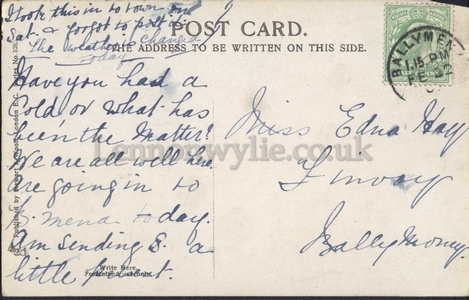 I took this in to town on
Sat. & forgot to post it
The weather's changed
today
POST CARD.
THE ADDRESS TO BE WRITTEN ON THIS SIDE.
BALLYMENA
1.15 PM
Have you had a
cold or what has
been the matter?
We are all well here
are going in to
B. mena today.
Am sending S. a
little
Miss Edna Hay
Finvoy
Ballymoney
Write Here
ennerwylie.co.uk